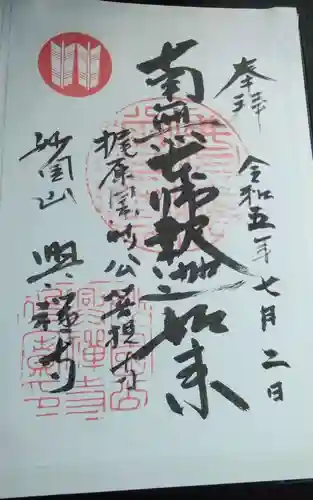 奉拝
令和五年七月二日
南無本師釈迦如来
梶原景時公菩提寺
興禅寺